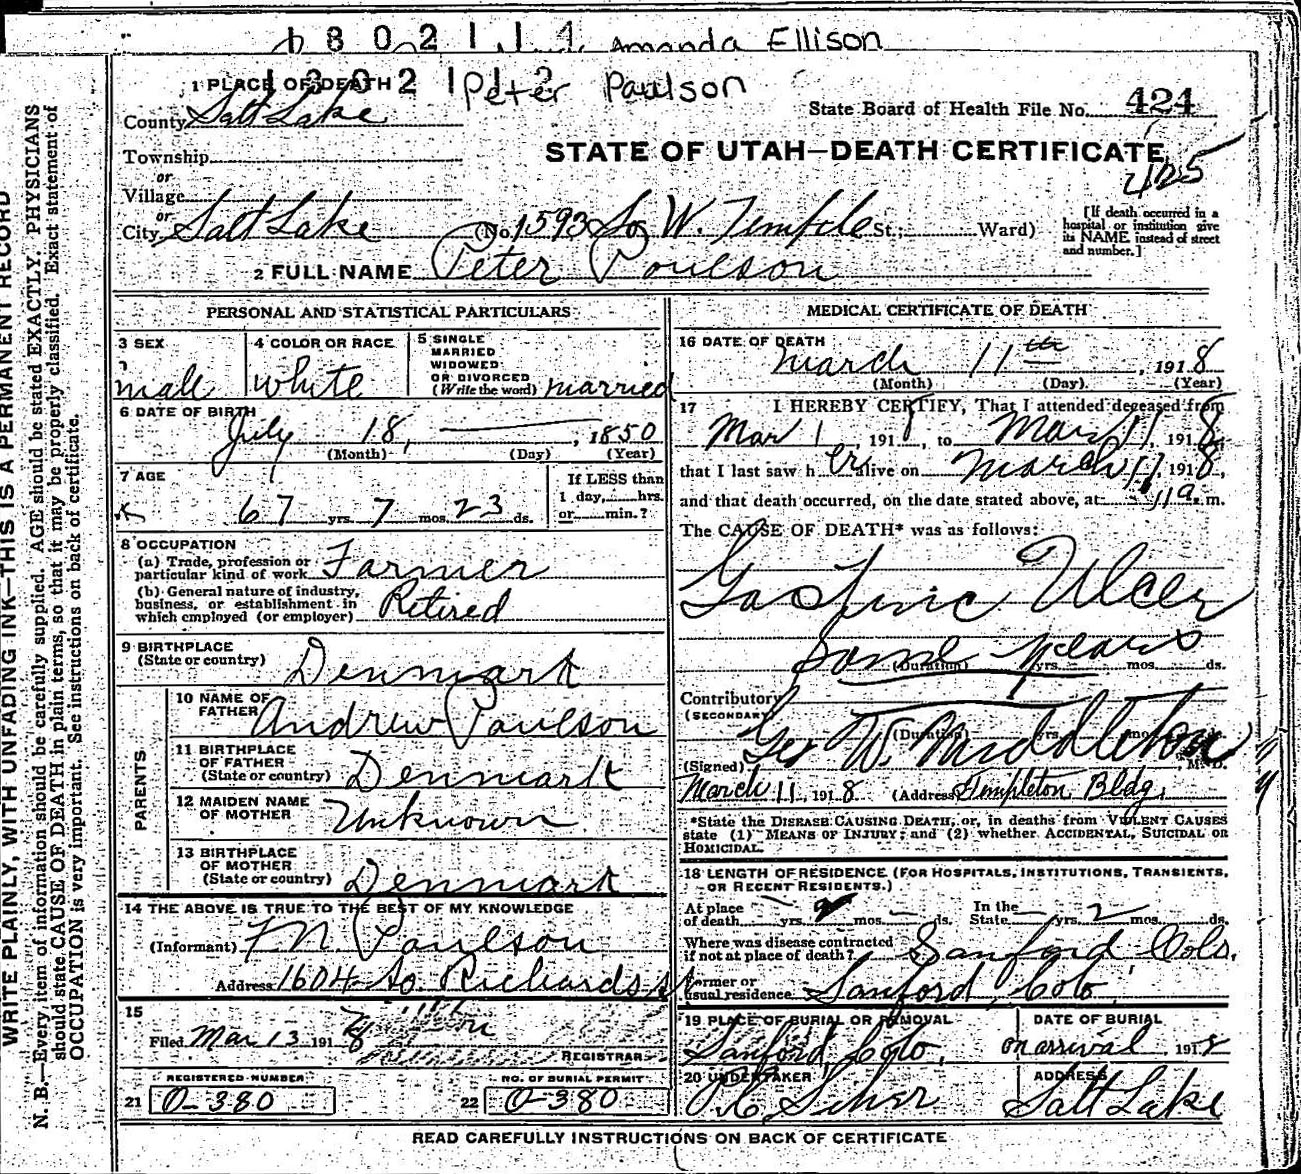 1 8 0 2 1 1 1 Amanda Ellison
1 PLACE OF DEATH
1 8 0 2 1 1 2 Peter Paulson
County Salt Lake
State Board of Health File No. 424
Township
or
STATE OF UTAH—DEATH CERTIFICATE
425
Village
or
City Salt Lake (No. 1593 So W. Temple St.; Ward)
[If death occurred in a
hospital or institution give
its NAME instead of street
and number.]
2 FULL NAME Peter Poulson
PERSONAL AND STATISTICAL PARTICULARS
3 SEX
male
4 COLOR OR RACE
white
5 SINGLE
MARRIED
WIDOWED
OR DIVORCED
(Write the word) married
6 DATE OF BIRTH
July 18, , 1850
(Month) (Day) (Year)
7 AGE
67 yrs. 7 mos. 23 ds.
If LESS than
1 day, hrs.
or min.?
8 OCCUPATION
(a) Trade, profession or
particular kind of work Farmer
(b) General nature of industry,
business, or establishment in
which employed (or employer) Retired
9 BIRTHPLACE
(State or country) Denmark
PARENTS
10 NAME OF
FATHER Andrew Paulson
11 BIRTHPLACE
OF FATHER
(State or country) Denmark
12 MAIDEN NAME
OF MOTHER Unknown
13 BIRTHPLACE
OF MOTHER
(State or country) Denmark
14 THE ABOVE IS TRUE TO THE BEST OF MY KNOWLEDGE
(Informant) F. N. Paulson
Address 1604 So. Richards st
15
Filed Mar 13 191 8
REGISTRAR
REGISTERED NUMBER
21 0-380
NO. OF BURIAL PERMIT
22 0-380
MEDICAL CERTIFICATE OF DEATH
16 DATE OF DEATH
March 11th , 1918
(Month) (Day) (Year)
17 I HEREBY CERTIFY, That I attended deceased from
Mar 1 , 1918, to Mar 11, 1918,
that I last saw h alive on March 11 1918,
and that death occurred, on the date stated above, at 11 a. m.
The CAUSE OF DEATH* was as follows:
Gastric Ulcer
Some years
(Duration) yrs. mos. ds.
Contributory
(SECONDARY)
(Duration) yrs. mos. ds.
(Signed) Geo W. Middleton, M. D.
March 11, 1918 (Address) Templeton Bldg.
*State the DISEASE CAUSING DEATH, or, in deaths from VIOLENT CAUSES
state (1) MEANS OF INJURY; and (2) whether ACCIDENTAL, SUICIDAL OR
HOMICIDAL.
18 LENGTH OF RESIDENCE (FOR HOSPITALS, INSTITUTIONS, TRANSIENTS,
OR RECENT RESIDENTS.)
At place
of death yrs. mos. ds.
In the
State yrs. 2 mos. ds.
Where was disease contracted
if not at place of death? Sanford Colo.
Former or
usual residence Sanford Colo.
19 PLACE OF BURIAL OR REMOVAL
Sanford, Colo.
DATE OF BURIAL
on arrival 1918
20 UNDERTAKER
ADDRESS
Salt Lake
READ CAREFULLY INSTRUCTIONS ON BACK OF CERTIFICATE
WRITE PLAINLY, WITH UNFADING INK—THIS IS A PERMANENT RECORD
N. B.—Every item of information should be carefully supplied. AGE should be stated EXACTLY. PHYSICIANS
should state CAUSE OF DEATH in plain terms, so that it may be properly classified. Exact statement of
OCCUPATION is very important. See instructions on back of certificate.